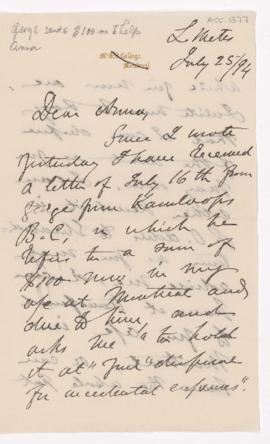 George sends $100 to help
Anna
ACC. 1377
McGill College,
Montreal.
L. Metis
July 25/94
Dear Anna,
Since I wrote
yesterday I have received
a letter of July 16th from
George from Kamloops
B.C., in which he
refers to a sum of
$100 now in my
at Montreal and
due to him, and
asks me "to hold
it at" your "disposal
for accidental expenses".